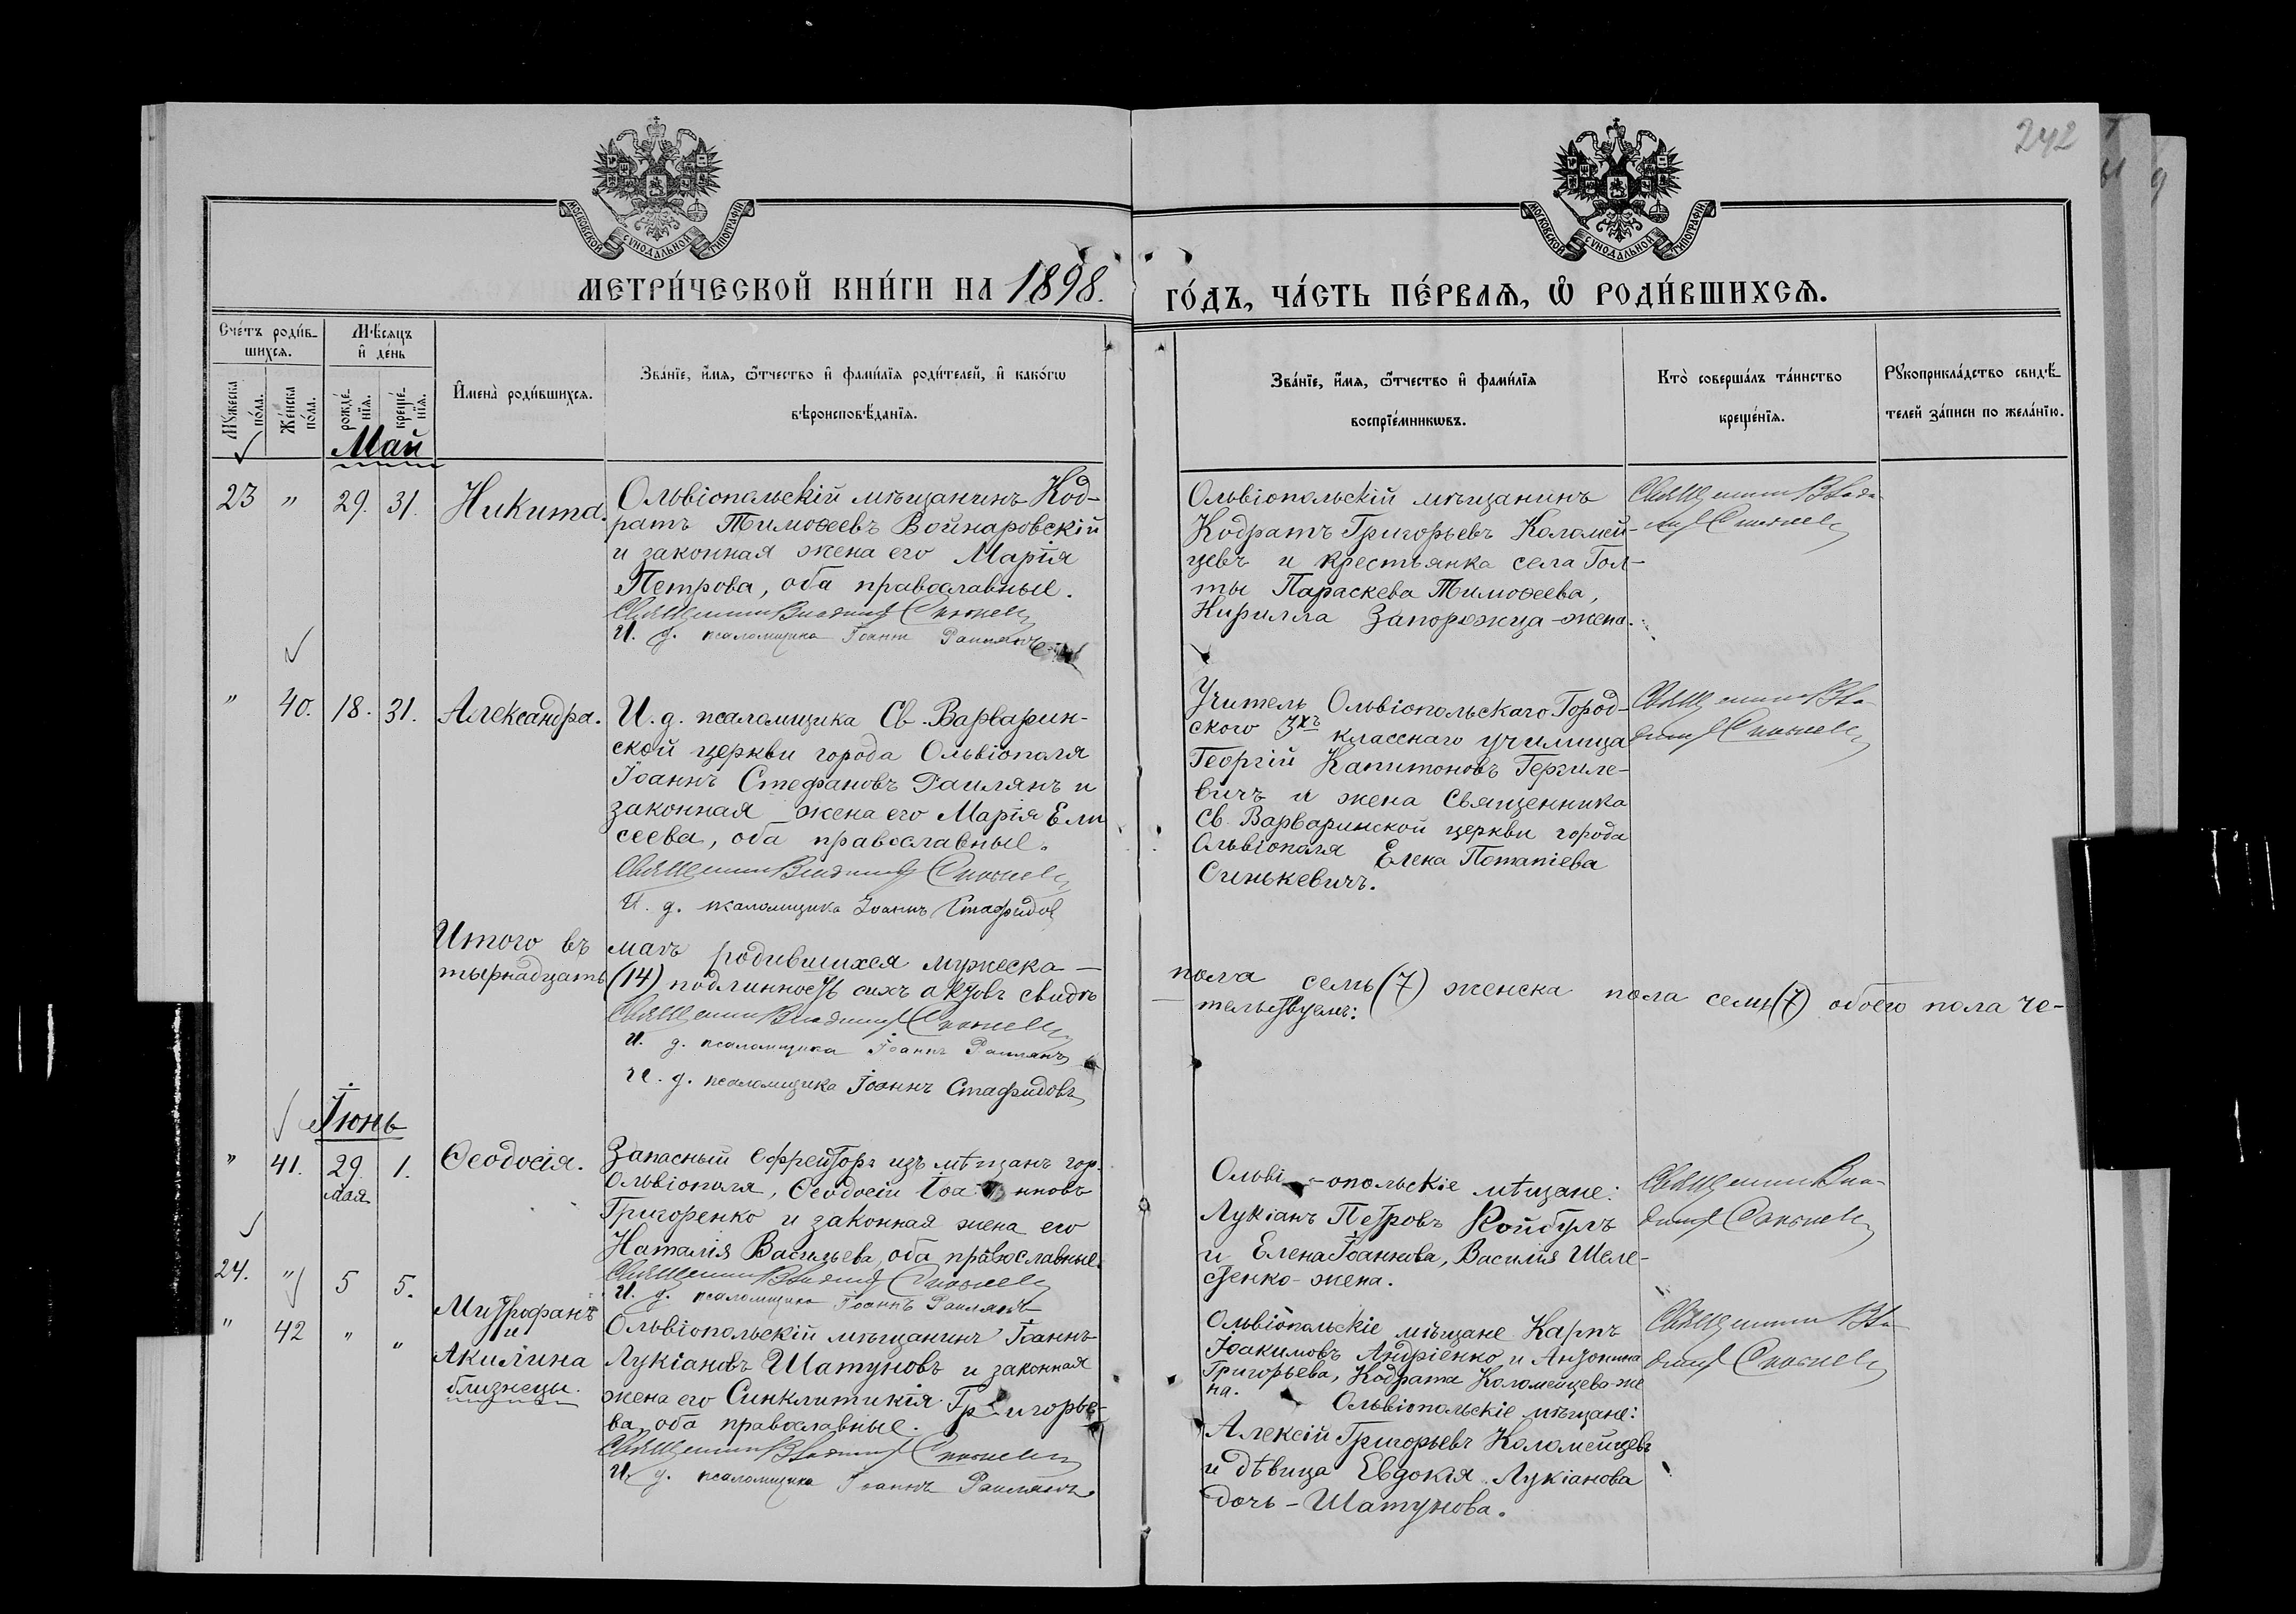 242
МОСКОВСКОЙ СѴНОДАЛЬНОЙ ТИПОГРАФІИ
МОСКОВСКОЙ СѴНОДАЛЬНОЙ ТИПОГРАФІИ
МЕТРИ́ЧЕСКОЙ КНИ́ГИ НА 1898.
ГО́ДЪ, ЧА́СТЬ ПЕ́РВАѦ, Ѡ҆ РОДИ́ВШИХСѦ.
Сче́тъ роди́в-
шихсѧ.
Мѣ́сѧцъ
и҆ де́нь
Мꙋ́жеска
по́ла.
Же́нска
по́ла.
рожде́-
нїѧ.
креще́-
нїѧ.
И҆мена̀ роди́вшихсѧ.
Зва́нїе, и҆́мѧ, ѻ҆́тчество и҆ фами́лїѧ роди́телей, и҆ како́гѡ
вѣроисповѣ́данїѧ.
Зва́нїе, и҆́мѧ, ѻ҆́тчество и҆ фами́лїѧ
воспрїе́мникѡвъ.
Кто̀ соверша́лъ та́инство
креще́нїѧ.
Рꙋкоприкла́дство свидѣ́-
телей за́писи по жела́нїю.
Май
23 " 29. 31. Никита.
Ольвіопольскій мѣщанинъ Код-
ратъ Тимоѳеевъ Войнаровскій
и законная жена его Марія
Петрова, оба православные.
Священникъ Владимір
И. д. псаломщика Іоаннъ Раилянъ
Ольвіопольскій мѣщанинъ
Кодратъ Григорьевъ Коломей-
цевъ и крестьянка села Гол-
ты Параскева Тимоѳеева,
Кирилла Запорожца-жена.
Священникъ Влади-
мір
" 40. 18. 31. Александра.
И. д. псаломщика Св. Варварин-
ской церкви города Ольвіополя
Іоаннъ Стефановъ Раилянъ и
законная жена его Марія Ели
сеева, оба православные.
Священникъ Владимір
И. д. псаломщика Іоаннъ Стафидов
Учитель Ольвіопольскаго Город-
ского 3хъ класснаго училища
Георгій Капитоновъ Гержиле-
вичъ и жена Священника
Св. Варваринской церкви города
Ольвіополя Елена Потапіева
Синькевичъ.
Священникъ Вла-
димір
Итого въ маѣ родившихся мужеска — пола семь (7) женска пола семь (7) обоего пола че-
тырнадцать (14) подлинность сихъ актовъ свидѣ — тельствуемъ:
Священникъ Владимір
И. д. псаломщика Іоаннъ Раилянъ
И. д. псаломщика Іоаннъ Стафидовъ
Іюнь
" 41. 29 1. Ѳеодосія.
мая
Запасный ефрейторъ изъ мѣщанъ гор.
Ольвіополя, Ѳеодосій Іоанновъ
Григоренко и законная жена его
Наталія Васильева, оба православные.
Священникъ Владимір
И. д. псаломщика Іоаннъ Раилянъ
Ольві-опольскіе мѣщане:
Лукіанъ Петровъ Ройбулъ
и Елена Іоаннова, Василія Шеле-
стенко-жена.
Священникъ Вла-
димір
24. " 5 5.
Митрофанъ
и
" 42 " "
Акилина
близнецы.
Ольвіопольскій мѣщанинъ Іоаннъ
Лукіановъ Шатуновъ и законная
жена его Синклитикія Григорье-
ва, оба православные.
Священникъ Владимір
И. д. псаломщика Іоаннъ Раилянъ
Ольвіопольскіе мѣщане Карпъ
Іоакимовъ Андріенко и Антонина
Григорьева, Кодрата Коломейцева же
на.
Ольвіопольскіе мѣщане:
Алексій Григорьевъ Коломейцевъ
и дѣвица Евдокія Лукіанова
дочь-Шатунова.
Священникъ Вла-
димір